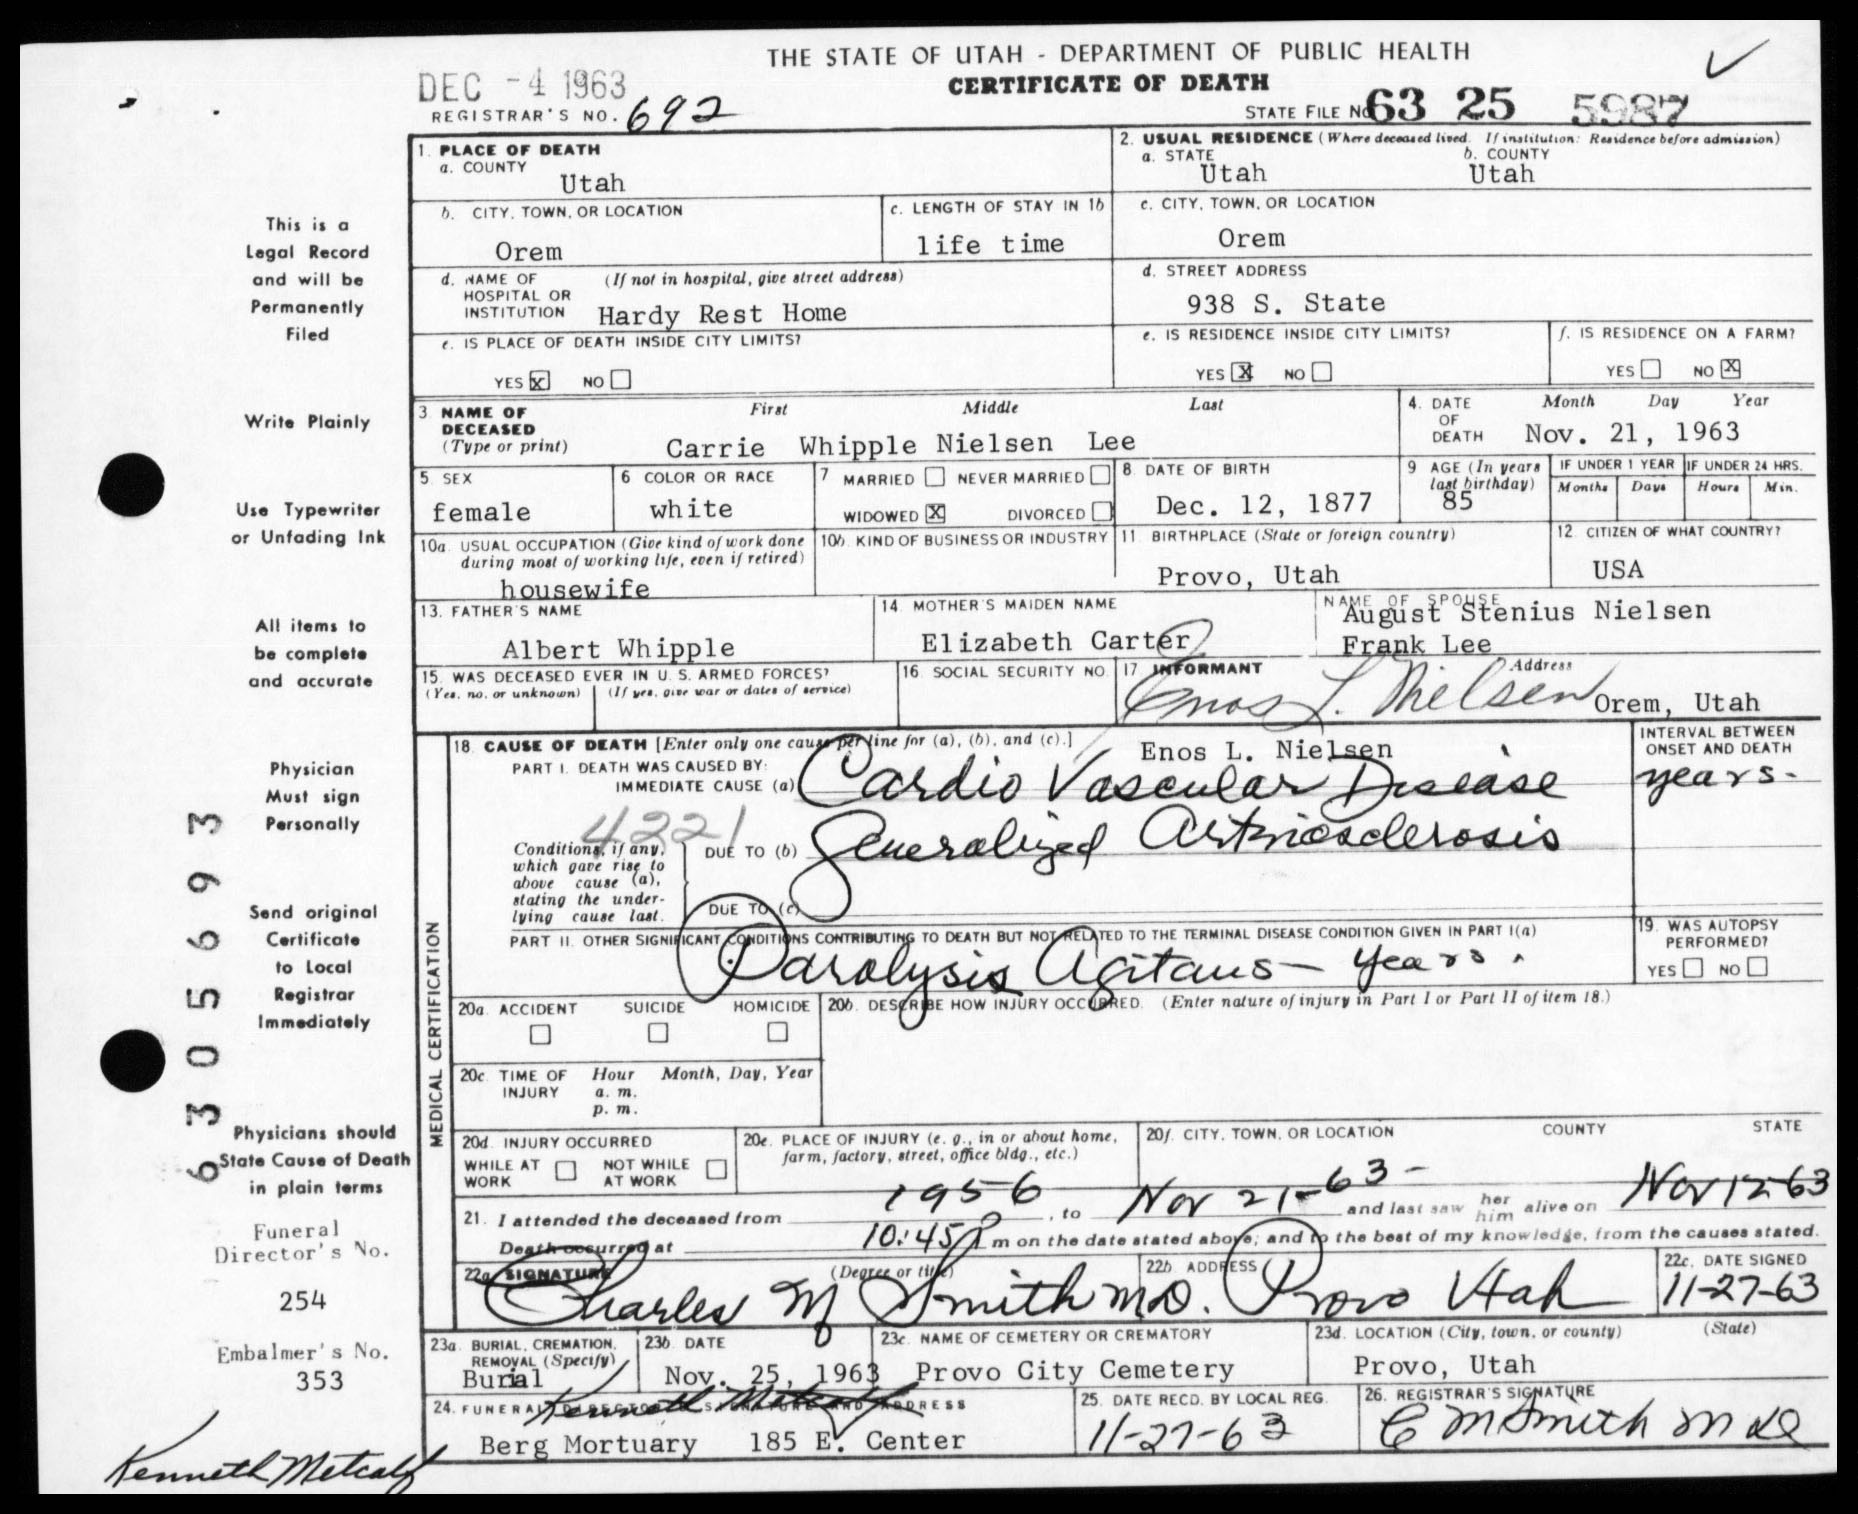 THE STATE OF UTAH - DEPARTMENT OF PUBLIC HEALTH
CERTIFICATE OF DEATH
DEC -4 1963
REGISTRAR'S NO. 692
STATE FILE NO. 63 25 5987
1. PLACE OF DEATH
a. COUNTY
Utah
2. USUAL RESIDENCE (Where deceased lived. If institution: Residence before admission)
a. STATE b. COUNTY
Utah Utah
b. CITY, TOWN, OR LOCATION
Orem
c. LENGTH OF STAY IN 1b
life time
c. CITY, TOWN, OR LOCATION
Orem
d. NAME OF HOSPITAL OR INSTITUTION (If not in hospital, give street address)
Hardy Rest Home
d. STREET ADDRESS
938 S. State
e. IS PLACE OF DEATH INSIDE CITY LIMITS?
YES X NO
e. IS RESIDENCE INSIDE CITY LIMITS?
YES X NO
f. IS RESIDENCE ON A FARM?
YES NO X
3. NAME OF DECEASED (Type or print)
First Middle Last
Carrie Whipple Nielsen Lee
4. DATE OF DEATH Month Day Year
Nov. 21, 1963
5. SEX
female
6. COLOR OR RACE
white
7. MARRIED NEVER MARRIED
WIDOWED X DIVORCED
8. DATE OF BIRTH
Dec. 12, 1877
9. AGE (In years last birthday)
85
IF UNDER 1 YEAR IF UNDER 24 HRS.
Months Days Hours Min.
10a. USUAL OCCUPATION (Give kind of work done during most of working life, even if retired)
housewife
10b. KIND OF BUSINESS OR INDUSTRY
11. BIRTHPLACE (State or foreign country)
Provo, Utah
12. CITIZEN OF WHAT COUNTRY?
USA
13. FATHER'S NAME
Albert Whipple
14. MOTHER'S MAIDEN NAME
Elizabeth Carter
NAME OF SPOUSE
August Stenius Nielsen
Frank Lee
15. WAS DECEASED EVER IN U.S. ARMED FORCES?
(Yes, no, or unknown) (If yes, give war or dates of service)
16. SOCIAL SECURITY NO.
17. INFORMANT Address
Enos L. Nielsen Orem, Utah
Enos L. Nielsen
MEDICAL CERTIFICATION
18. CAUSE OF DEATH [Enter only one cause per line for (a), (b), and (c).]
PART I. DEATH WAS CAUSED BY:
IMMEDIATE CAUSE (a) Cardio Vascular Disease
INTERVAL BETWEEN ONSET AND DEATH
years-
4221
Conditions, if any, which gave rise to above cause (a), stating the underlying cause last.
DUE TO (b) Generalized Arteriosclerosis
DUE TO (c)
PART II. OTHER SIGNIFICANT CONDITIONS CONTRIBUTING TO DEATH BUT NOT RELATED TO THE TERMINAL DISEASE CONDITION GIVEN IN PART I(a)
Paralysis Agitans - years.
19. WAS AUTOPSY PERFORMED?
YES NO
20a. ACCIDENT SUICIDE HOMICIDE
20b. DESCRIBE HOW INJURY OCCURRED. (Enter nature of injury in Part I or Part II of item 18.)
20c. TIME OF INJURY Hour Month, Day, Year
a. m.
p. m.
20d. INJURY OCCURRED
WHILE AT WORK NOT WHILE AT WORK
20e. PLACE OF INJURY (e. g., in or about home, farm, factory, street, office bldg., etc.)
20f. CITY, TOWN, OR LOCATION COUNTY STATE
21. I attended the deceased from 1956, to Nov 21-63- and last saw her him alive on Nov 12-63
Death occurred at 10:45 P m on the date stated above; and to the best of my knowledge, from the causes stated.
22a. SIGNATURE (Degree or title)
Charles M Smith M.D.
22b. ADDRESS
Provo Utah
22c. DATE SIGNED
11-27-63
23a. BURIAL, CREMATION, REMOVAL (Specify)
Burial
23b. DATE
Nov. 25, 1963
23c. NAME OF CEMETERY OR CREMATORY
Provo City Cemetery
23d. LOCATION (City, town, or county) (State)
Provo, Utah
24. FUNERAL DIRECTOR'S SIGNATURE AND ADDRESS
Kenneth Metcalf
Berg Mortuary 185 E. Center
25. DATE RECD. BY LOCAL REG.
11-27-63
26. REGISTRAR'S SIGNATURE
C M Smith M D
This is a
Legal Record
and will be
Permanently
Filed
Write Plainly
Use Typewriter
or Unfading Ink
All items to
be complete
and accurate
Physician
Must sign
Personally
Send original
Certificate
to Local
Registrar
Immediately
Physicians should
State Cause of Death
in plain terms
Funeral
Director's No.
254
Embalmer's No.
353
Kenneth Metcalf
6305693